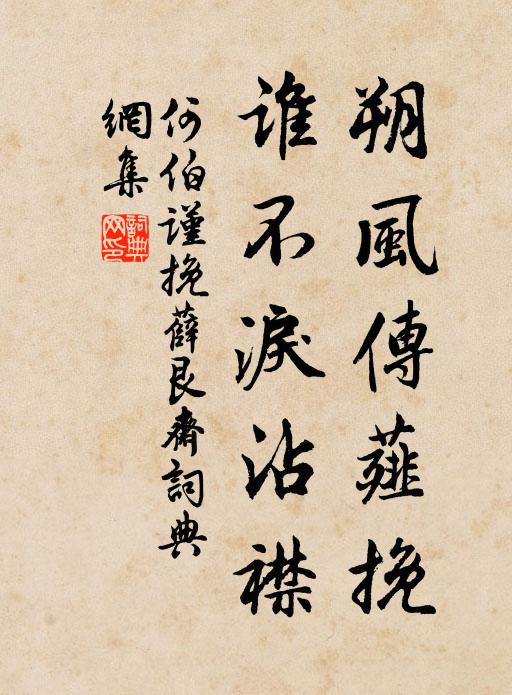 朔風傳薤挽
誰不淚沾襟
何伯謹挽薛艮齋詞典
網集
詞典網印